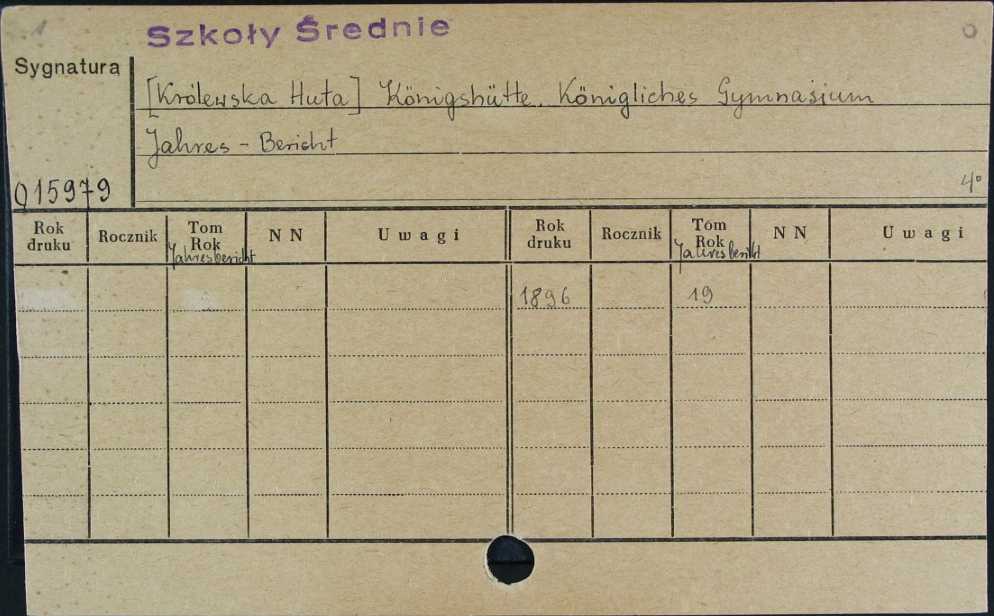 1
Szkoły Średnie
Sygnatura
[Królewska Huta] Königshütte. Königliches Gymnasium
Jahres - Bericht
015979
4°
Rok druku Rocznik Tom Rok Jahresbericht N N Uwagi Rok druku Rocznik Tom Rok Jahresbericht N N Uwagi
1896 19